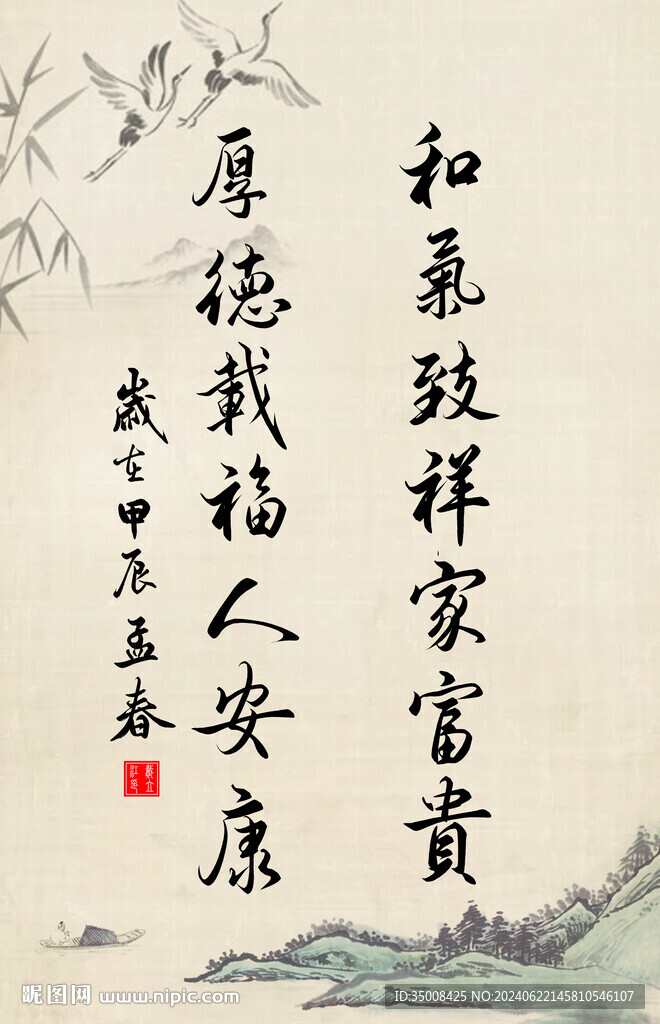 和氣致祥家富貴
厚德載福人安康
歲在甲辰孟春
昵图网 www.nipic.com
ID:35008425 NO:20240622145810546107